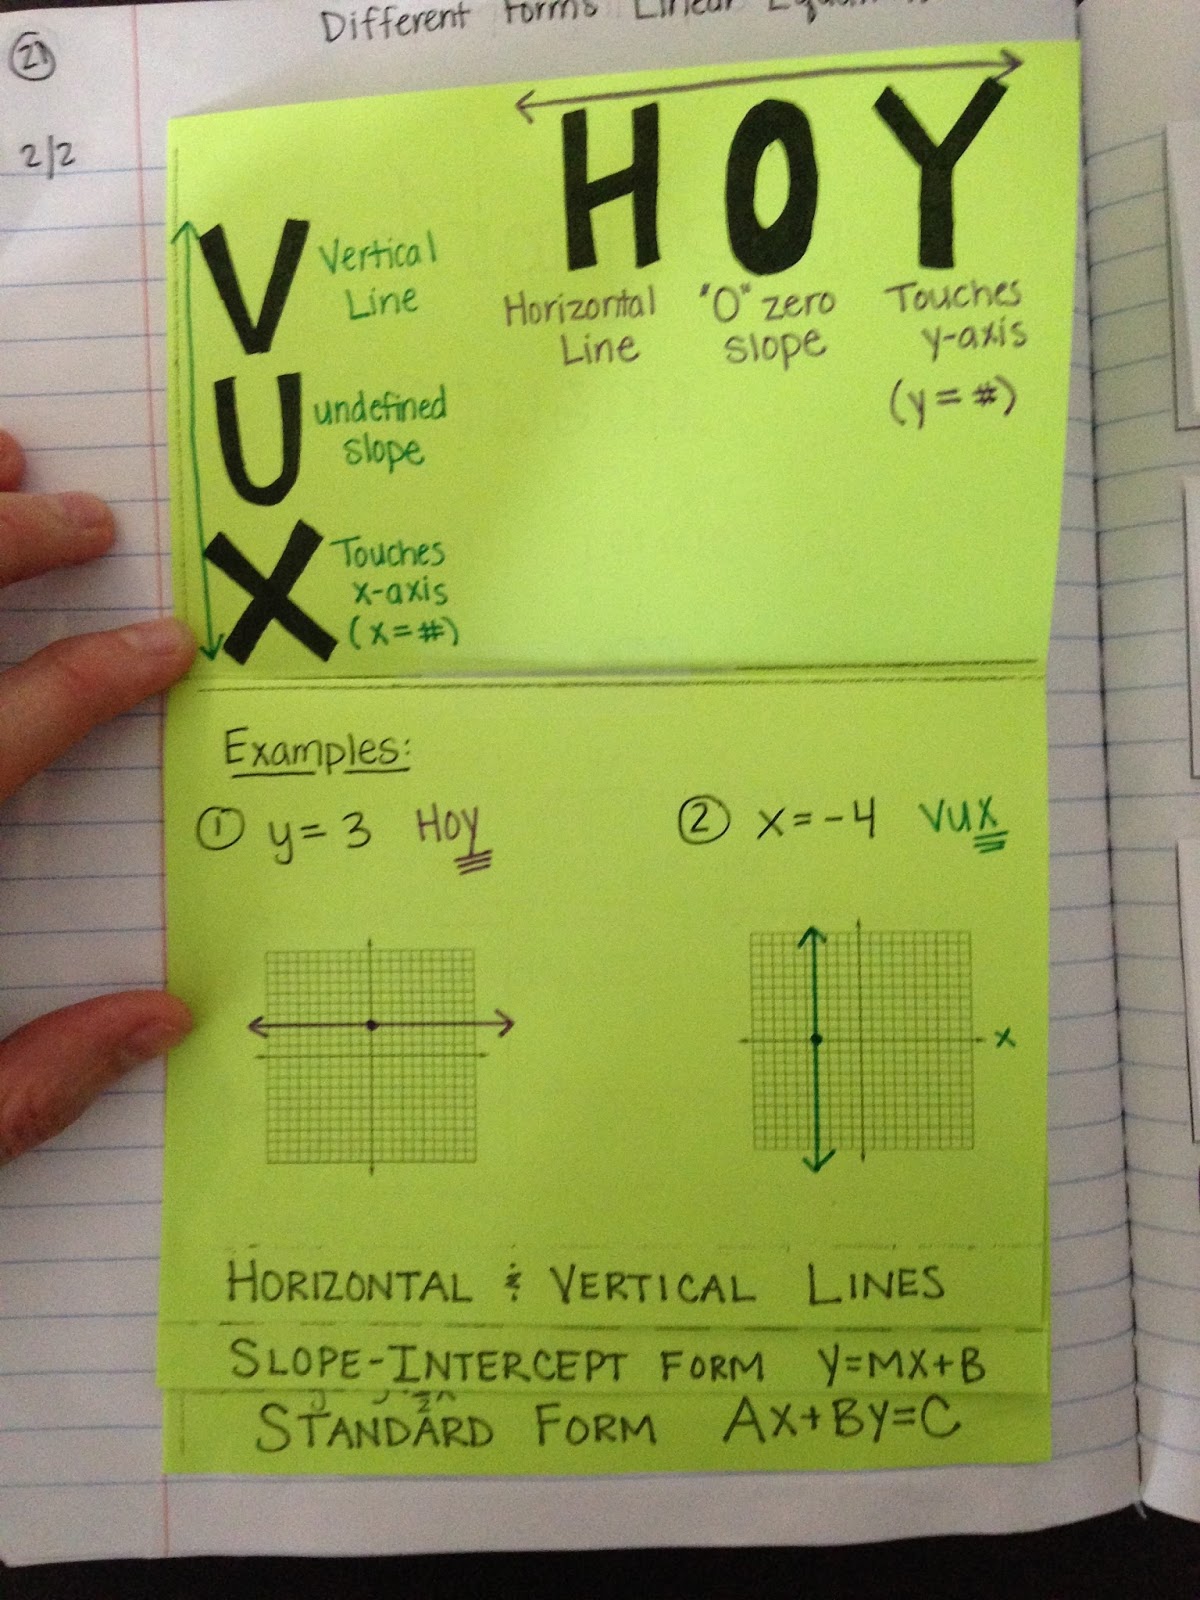 Different Forms Linear
21
2/2
HOY
Horizontal
Line
"0" zero
slope
Touches
y-axis
(y = #)
V
Vertical
Line
U
undefined
slope
X
Touches
x-axis
(x = #)
Examples:
① y = 3 HOy
② x = -4 VUX
x
HORIZONTAL & VERTICAL LINES
SLOPE-INTERCEPT FORM Y=MX+B
STANDARD FORM AX+BY=C